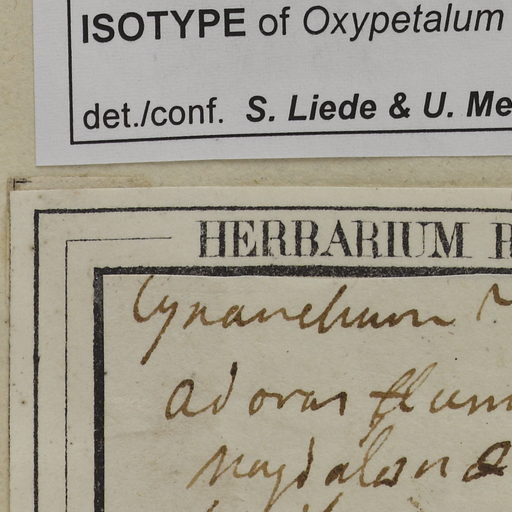 ISOTYPE of Oxypetalum
det./conf. S. Liede & U. Me
HERBARIUM
Cynanchum
ad oras flum
Magdalena